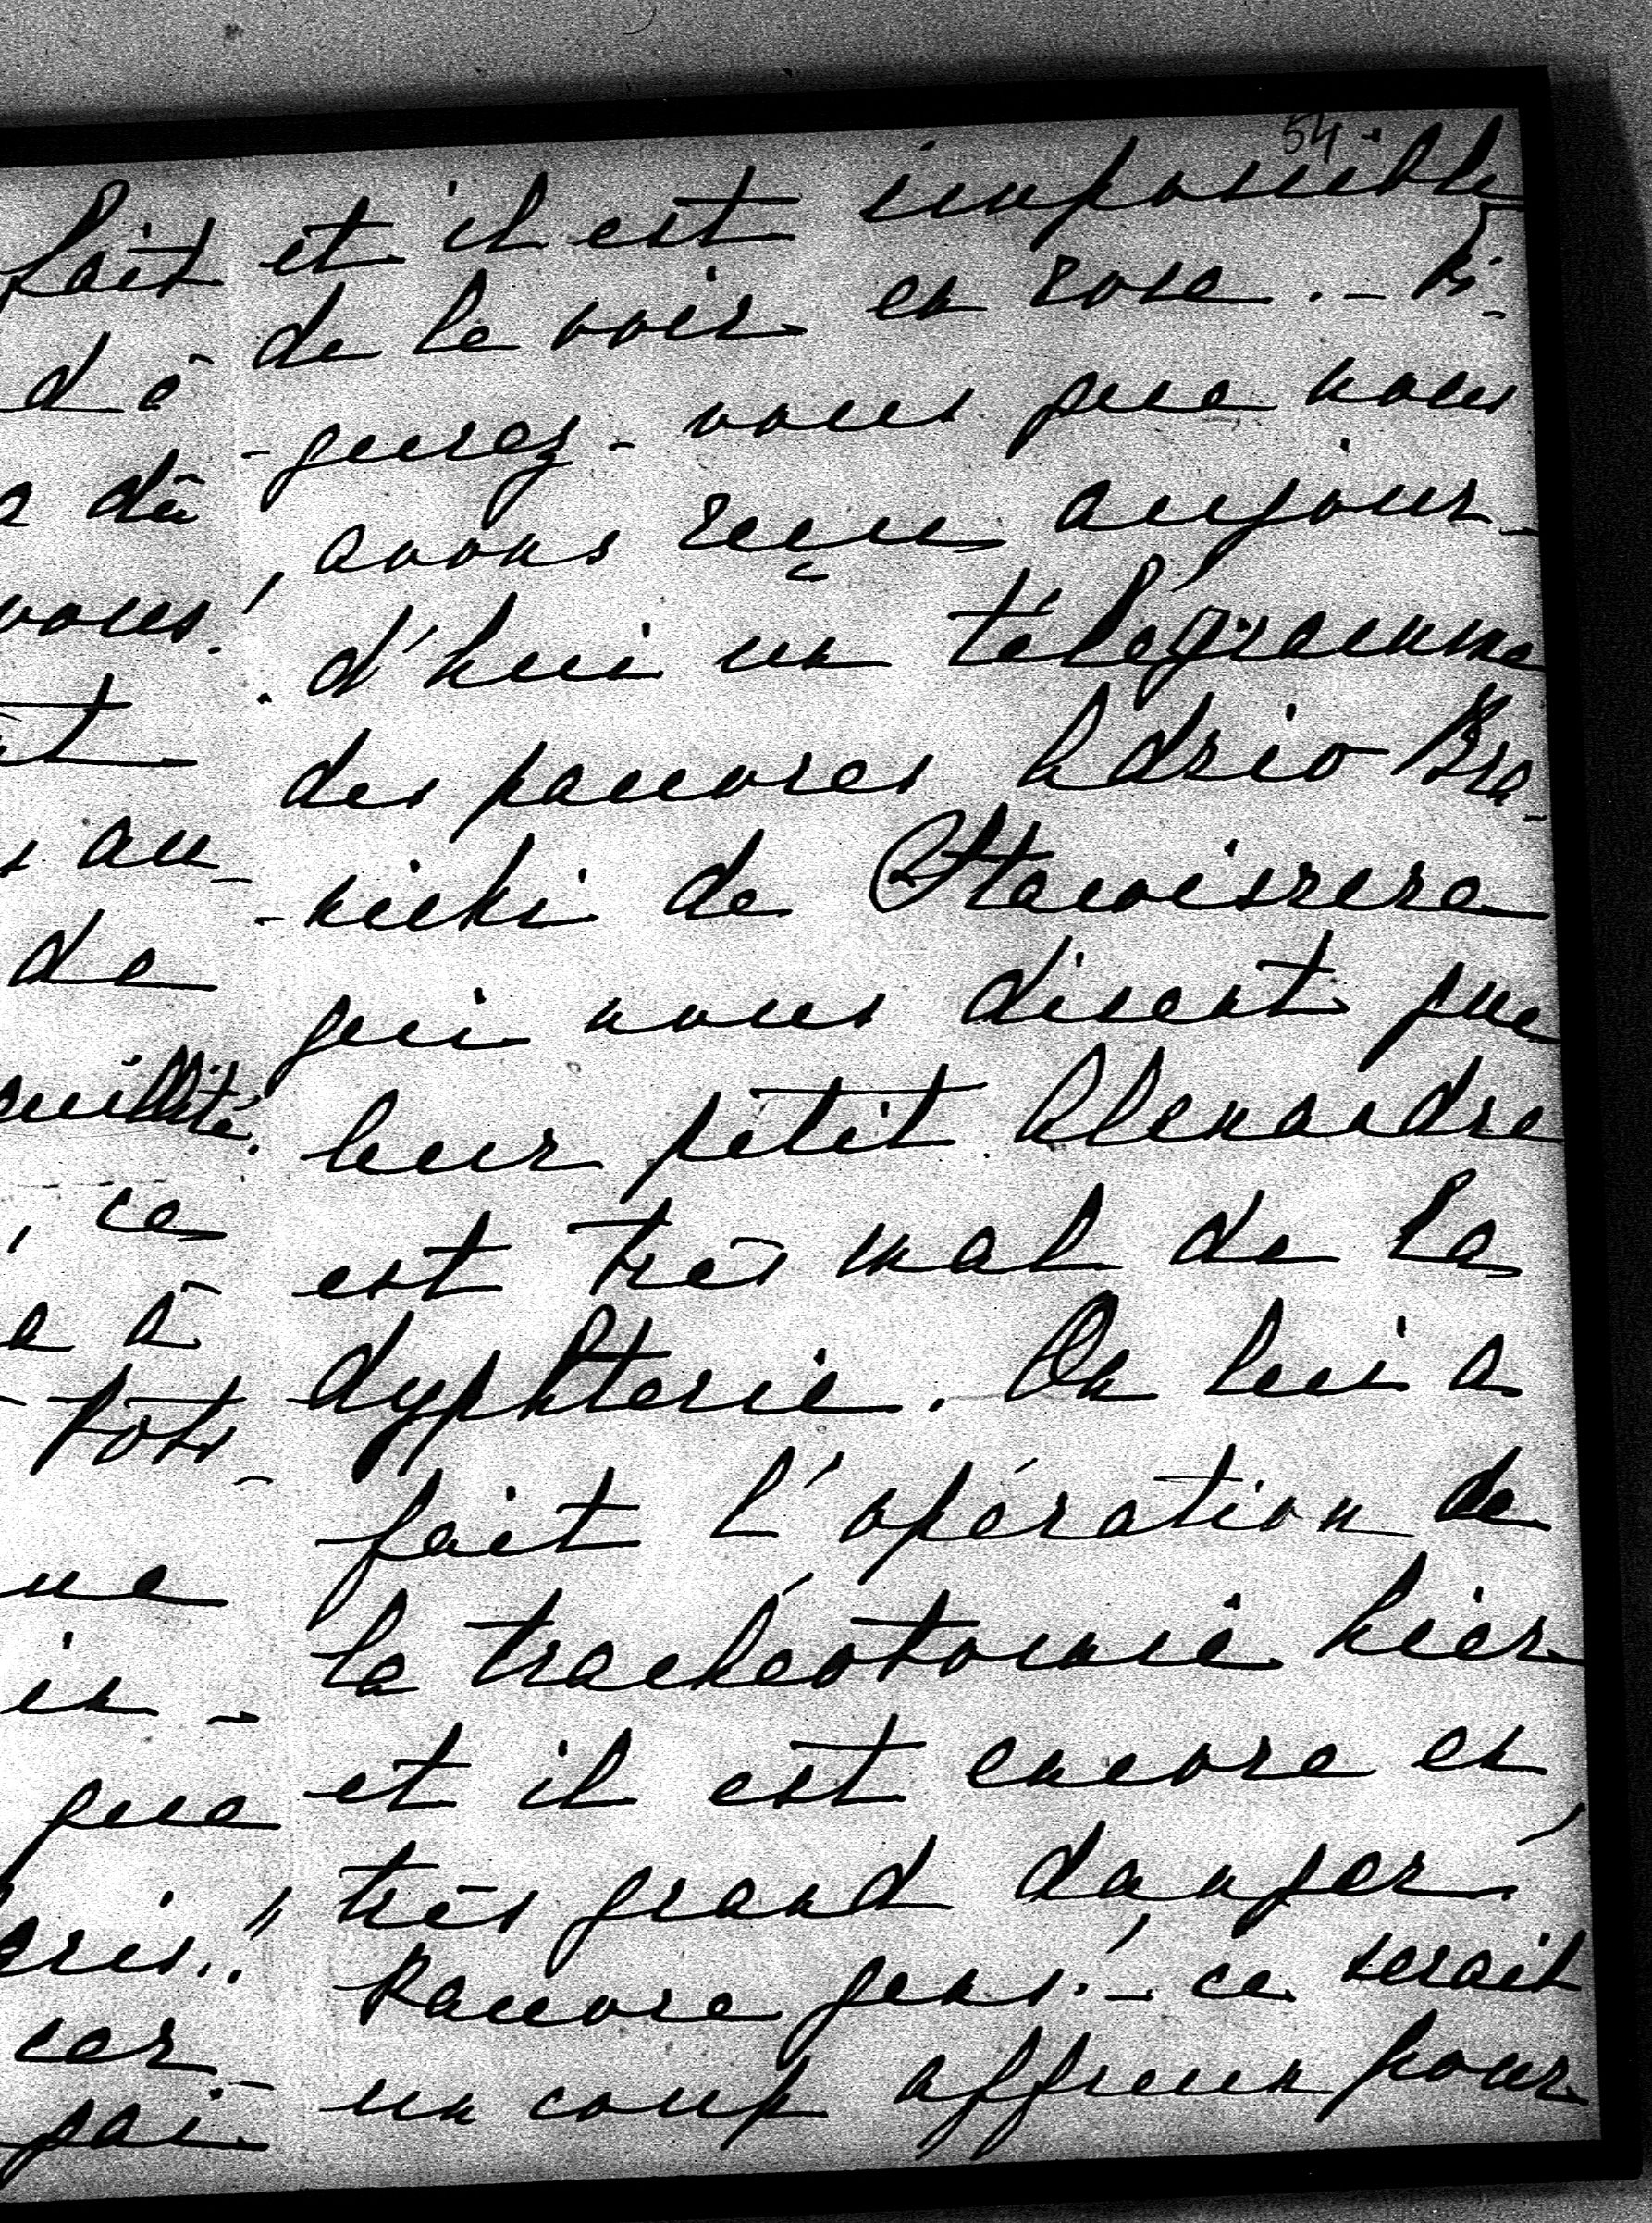 54.
et il est impossible
de le voir en rose. - Fi-
-gurez-vous que nous
avons reçu aujour-
d'hui un télégramme
des pauvres Adzio Bra-
-nicki de
qui nous disent que
leur petit Alexandre
est très mal de la
dyphterie. On lui a
fait l'opération de
la trachéotomie hier
et il est encore en
très grand danger!
Pauvre gens! - ce serait
un coup affreux pour
fait
d'é-
dû
vous!
au-
de
quillité.
, ce
à
que
cer-